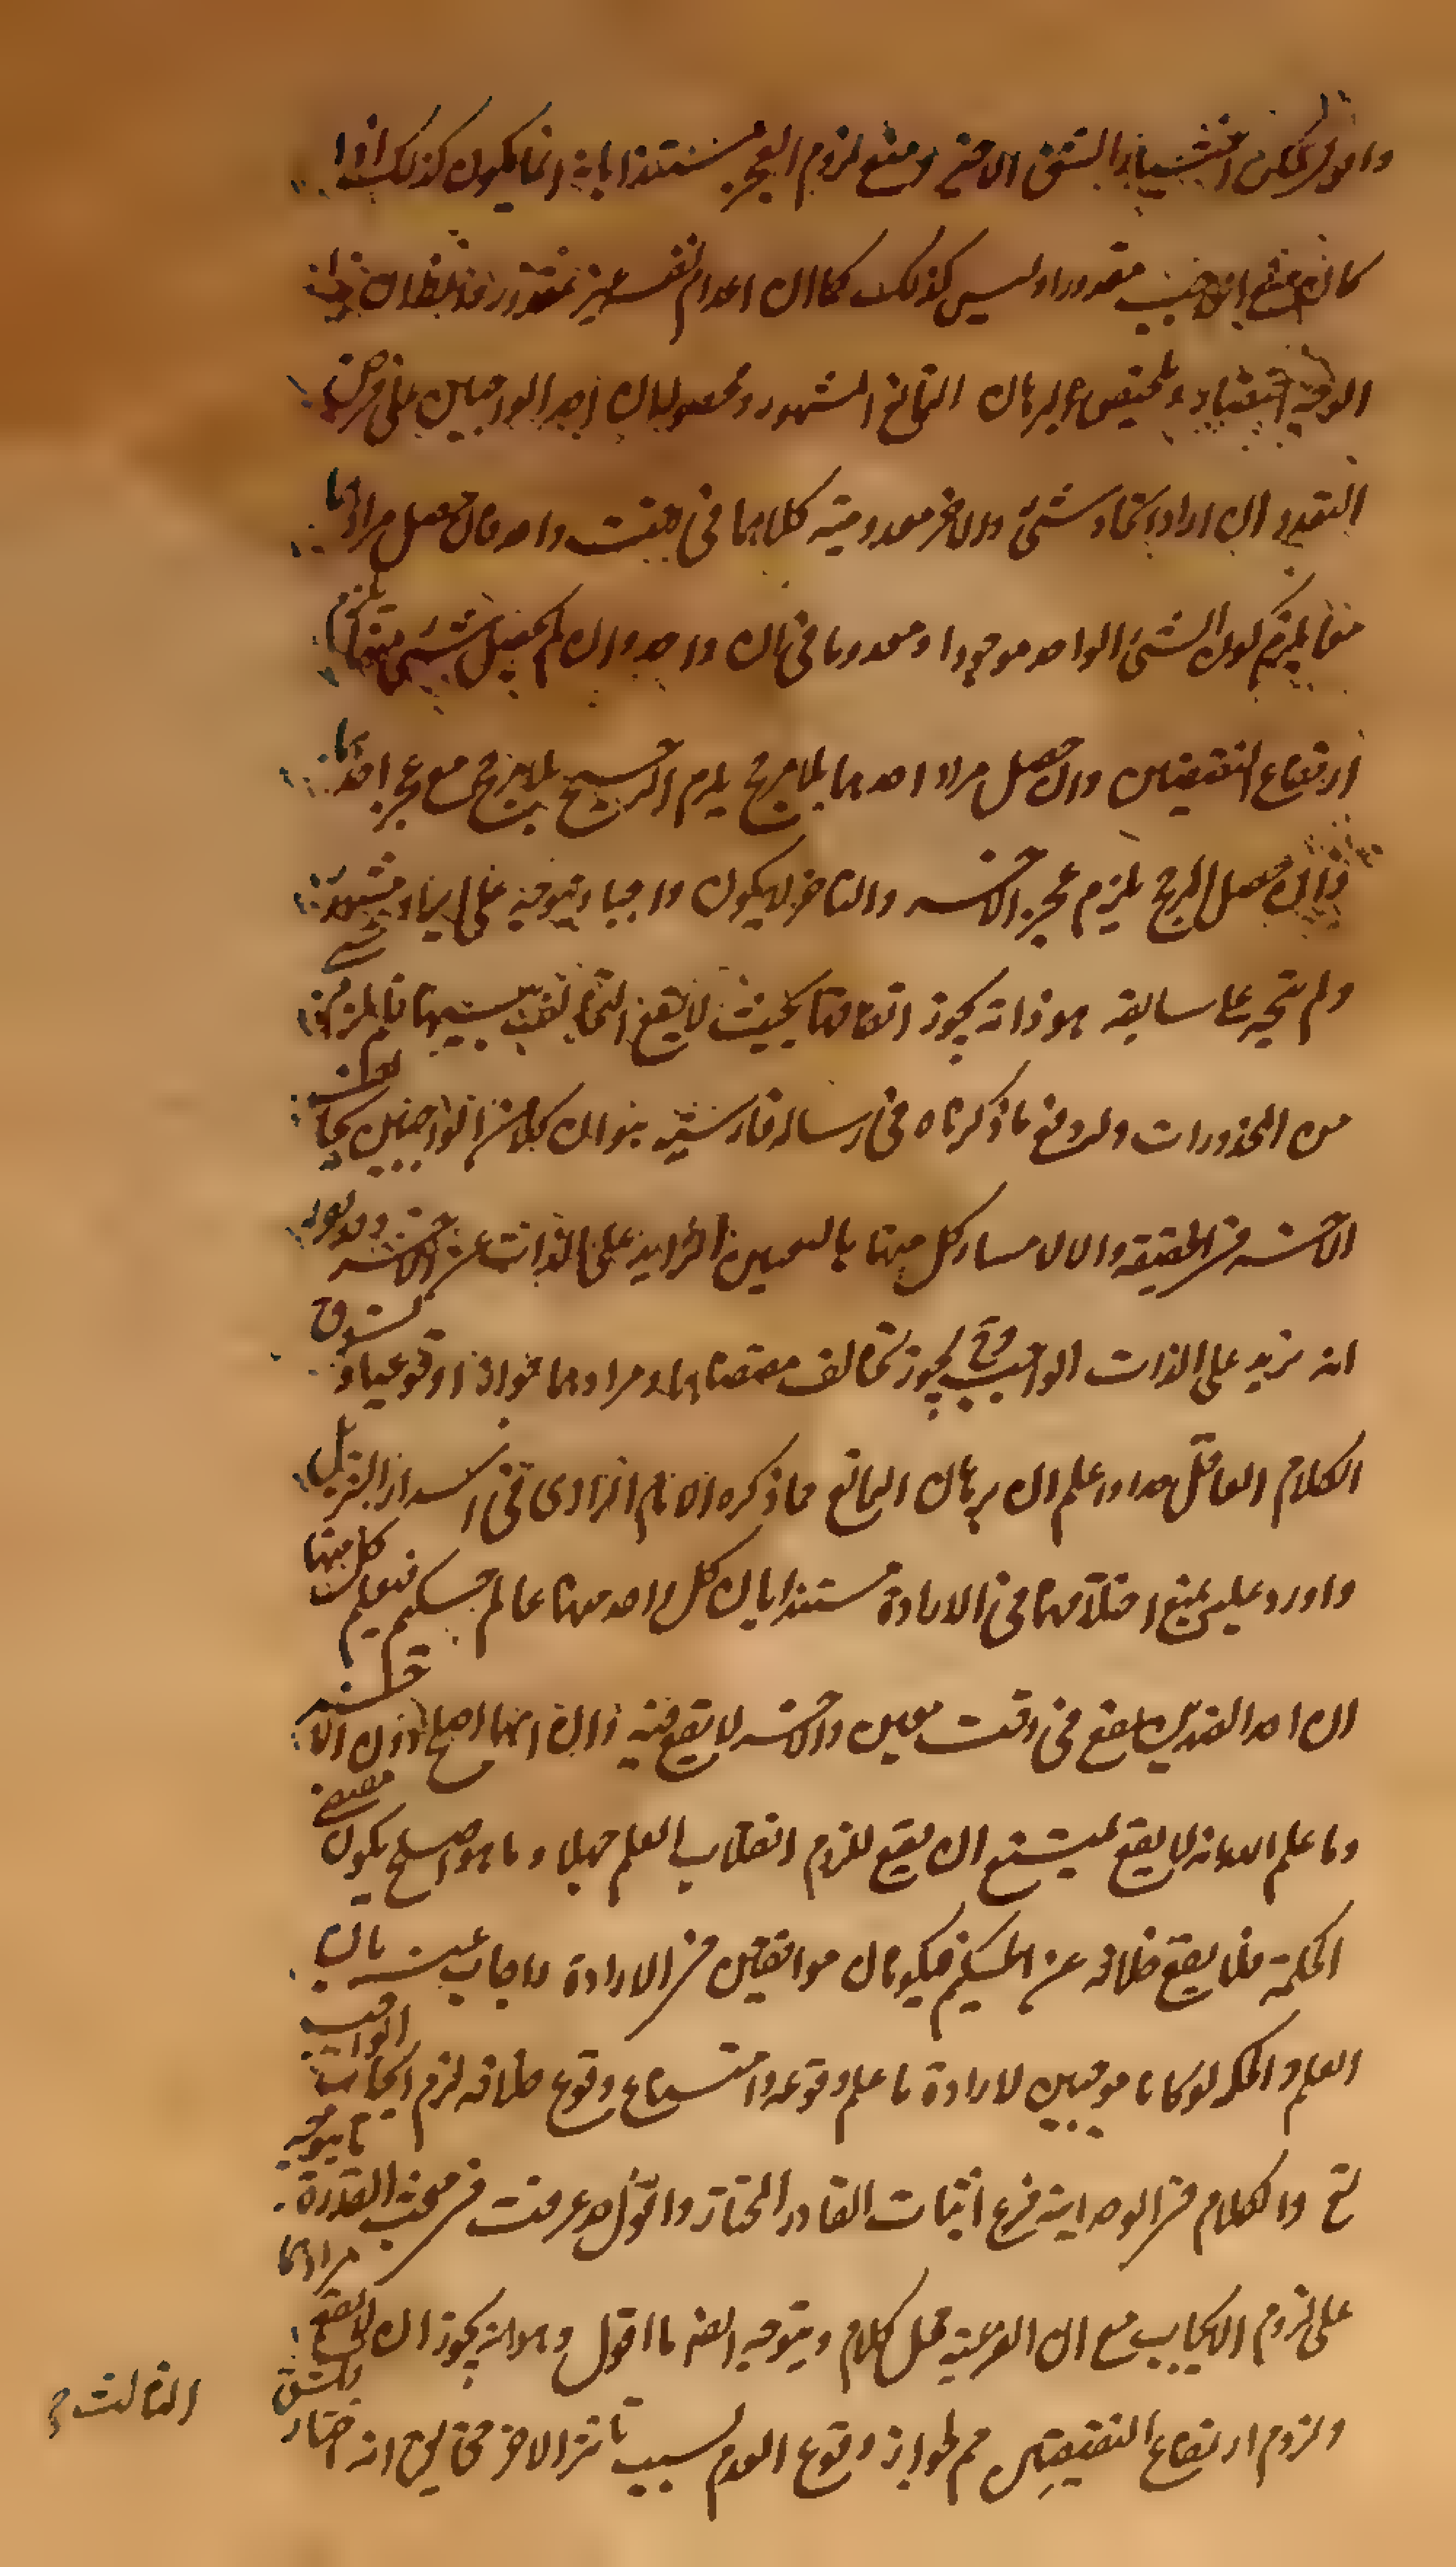 واقول يمكن اختيار الشق الاخير ومنع لزوم العجز مستندا بانه انما يكون كذلك اذا
كان منع الواجب مقدورا وليس كذلك كما ان اعدام نفسه غير مقدور
الوجه وتلخيص برهان التمانع المشهور ومحصوله ان احد الواجبين على فرض
التعدد ان اراد ايجاد شئ والاخر معدوميته كلاهما في وقت واحد فان حصل مرادهما
معا يلزم كون الشئ الواحد موجودا ومعدوما في ان واحد وان لم يحصل شئ منهما يلزم
ارتفاع النقيضين وان حصل مراد احدهما بلا مرجح يلزم الترجيح بلا مرجح مع عجز احدهما
وان حصل المرجح يلزم عجز الاخر والعاجز لا يكون واجبا ويتوجه على
ولم يتجه على سابقه هو انه يجوز اتفاقهما بحيث لا يقع التخالف بينهما فلا يلزم شئ
من المحذورات ولدفع ما ذكرناه في رسالة فارسية هو ان كلا من الواجبين يخالف
الاخر في الحقيقة والا لامتاز كل منهما بالتعين الزايد على الذات عن الاخر وقد تقرر
انه يزيد على الذات الواجب وح يجوز تخالف مقتضاهما ومرادهما جوازا وقوعيا وسوق
الكلام العاقل هذا واعلم ان برهان التمانع مما ذكره الامام الرازي في اسرار التنزيل
واورد عليه بمنع اختلافهما في الارادة مستندا بان كل واحد منهما عالم حكيم فيعلم كل منهما
ان احد الضدين يقع في وقت معين والاخر لا يقع فيه وان ايهما اصلح دون الاخر
وما علم الله انه لا يقع يمتنع ان يقع للزوم انقلاب العلم جهلا وما هو اصلح يكون مقتضى
الحكمة فلا يقع خلافه عن الحكيم فيكونان موافقين في الارادة واجاب عنه بان
العلم والحكمة لو كانا موجبين لارادة ما علم وقوعه وامتناع وقوع خلافه لزم ايجاب الواجب
تع والكلام في الوحدانية فرع اثبات القادر المختار واقول قد عرفت في مبحث القدرة ما يتوجه
على لزوم الايجاب مع ان الفرعية محل كلام ويتوجه ايضا ما اقول وهو انه يجوز ان لا يقع مرادهما
ولزوم ارتفاع النقيضين مم لجواز وقوع العدم بسبب تاثير الاخر فح يلزم انه اختار الشق
الثالث